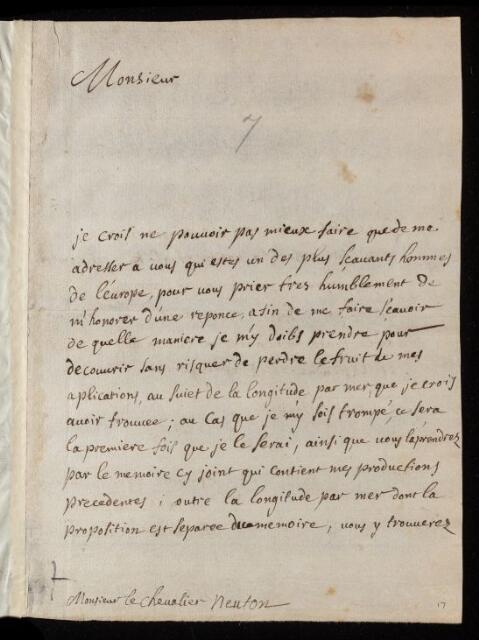 Monsieur
7
je crois ne pouvoir pas mieux faire que de me
adresser a vous qui estes un des plus sçavants hommes
de leurope, pour vous prier tres humblement de
m'honorer d'une reponce, afin de me faire scavoir
de quelle maniere je m'y doibs prendre pour
decouvrir sans risquer de perdre le fruit de mes
aplications, au suiet de la longitude par mer que je crois
avoir trouvée; au cas que je my sois trompé, ce sera
la premiere fois que je le serai, ainsi que vous l'aprendrez
par le memoire cy joint qui contient mes productions
precedentes; outre la longitude par mer dont la
proposition est separée du memoire, vous y trouverez
Monsieur le chevalier Neuton
17